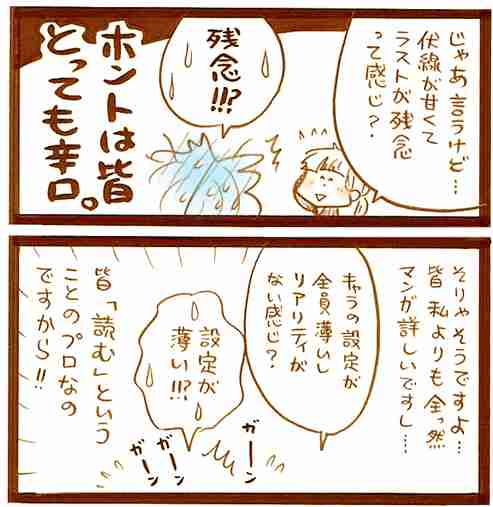 じゃあ言うけど…
伏線が甘くて
ラストが残念
って感じ?
残念!!?
ホントは皆
とっても辛口。
そりゃそうですよ…
皆私よりも全っ然
マンガ詳しいですし…
キャラの設定が
全員薄いし
リアリティが
ない感じ?
設定が
薄い!!?
ガーン
ガーン
ガーン
皆「読む」という
ことのプロなの
ですから!!